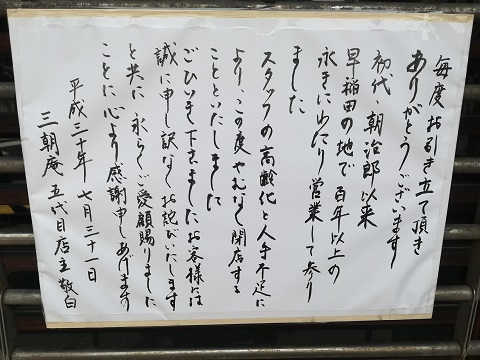 毎度お引き立て頂き
ありがとうございます
初代 朝治郎以来
早稲田の地で百年以上の
永きにわたり営業して参り
ました
スタッフの高齢化と人手不足に
より、この度やむなく閉店する
ことといたしました
ごひいき下さいましたお客様には
誠に申し訳なくお詫びいたします
と共に永らくご愛顧賜りました
ことに心より感謝申しあげます
平成三十年 七月三十一日
三朝庵 五代目店主 敬白